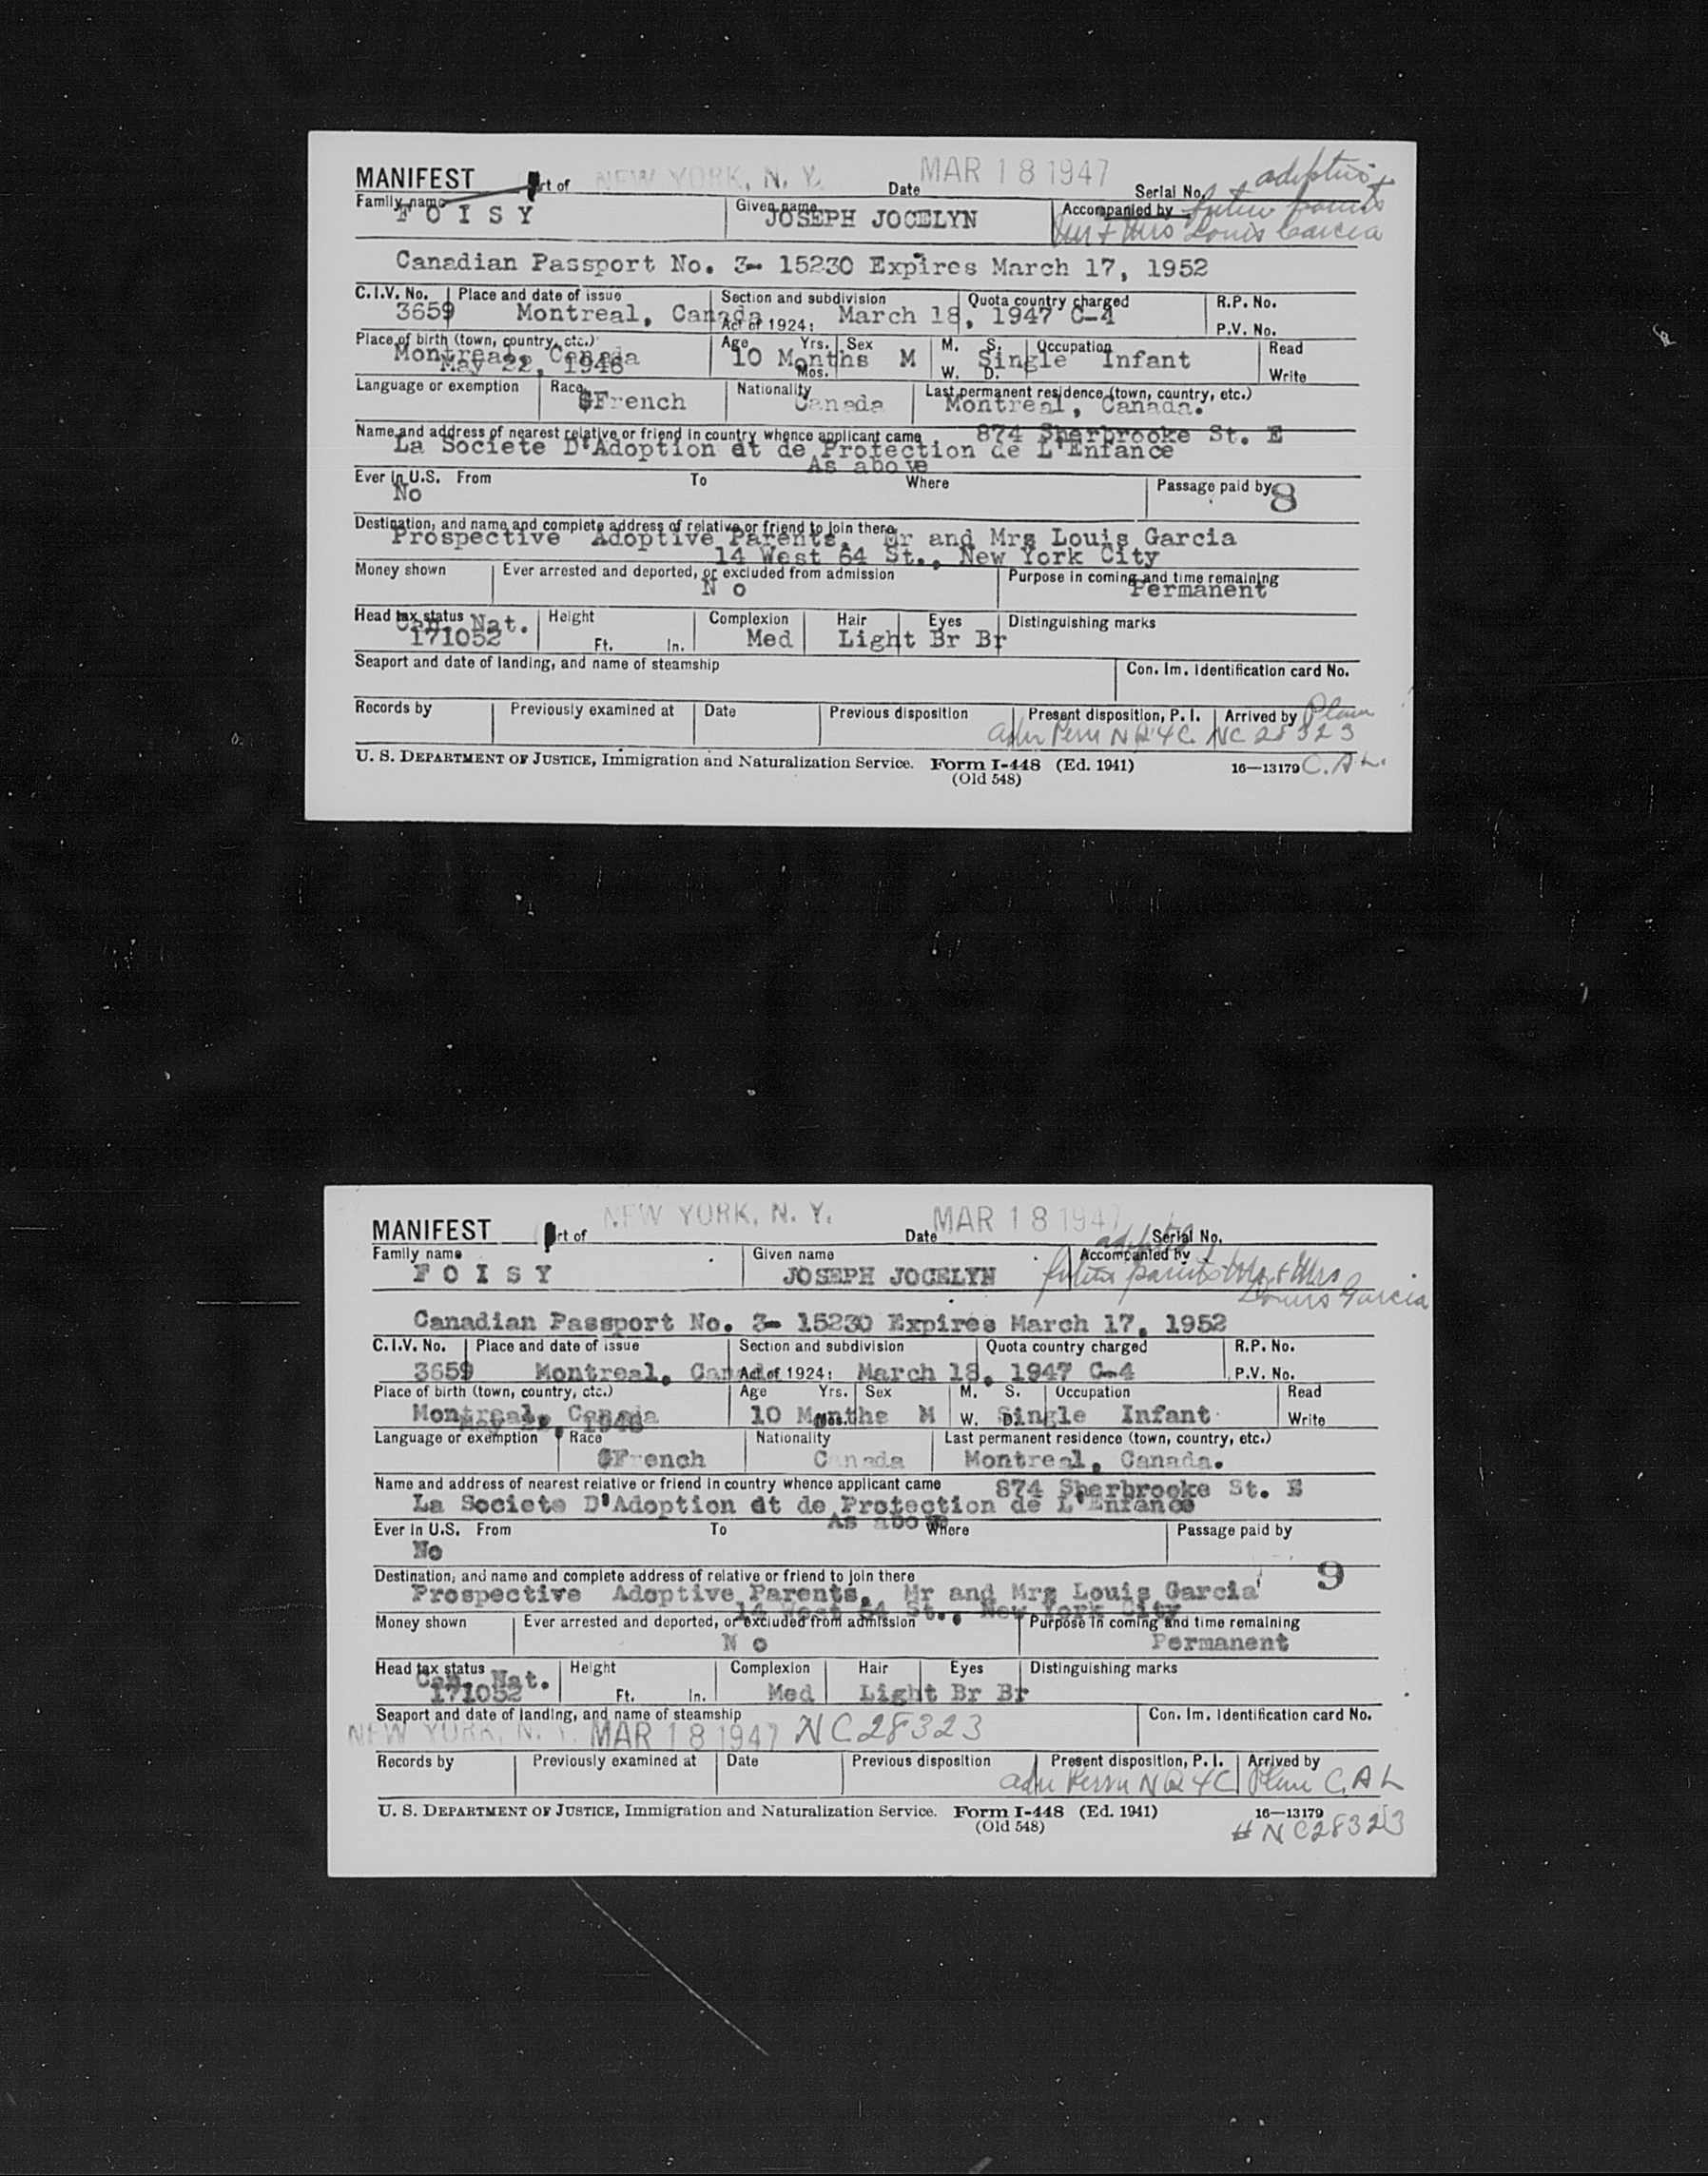 MANIFEST rt of NEW YORK, N. Y. Date MAR 18 1947 Serial No. adoptive
Family name FOISY Given name JOSEPH JOCELYN Accompanied by future parents
Mr + Mrs Louis Garcia
Canadian Passport No. 3- 15230 Expires March 17, 1952
C.I.V. No. Place and date of issue Section and subdivision Quota country charged R.P. No.
3659 Montreal, Canada Act of 1924: March 18, 1947 C-4 P.V. No.
Place of birth (town, country, etc.) Age Yrs. Sex M. S. Occupation Read
Montreal, Canada 10 Months M Single Infant
May 22, 1946 Mos. W. D. Write
Language or exemption Race Nationality Last permanent residence (town, country, etc.)
French Canada Montreal, Canada.
Name and address of nearest relative or friend in country whence applicant came 874 Sherbrooke St. E
La Societe D'Adoption et de Protection de L'Enfance
As above
Ever in U.S. From To Where Passage paid by 8
No
Destination, and name and complete address of relative or friend to join there
Prospective Adoptive Parents, Mr and Mrs Louis Garcia
14 West 64 St., New York City
Money shown Ever arrested and deported, or excluded from admission Purpose in coming and time remaining
No Permanent
Head tax status Height Complexion Hair Eyes Distinguishing marks
Can. Nat.
171052 Ft. In. Med Light Br Br
Seaport and date of landing, and name of steamship Con. Im. Identification card No.
Records by Previously examined at Date Previous disposition Present disposition, P. I. Arrived by Plane
Perm NQ4C NC 28323
U. S. DEPARTMENT OF JUSTICE, Immigration and Naturalization Service. Form I-448 (Ed. 1941) 16—13179 C.A.L.
(Old 548)
MANIFEST rt of NEW YORK, N. Y. Date MAR 18 1947 Serial No.
Family name Given name adoptive Accompanied by
FOISY JOSEPH JOCELYN future parents Mr + Mrs
Louis Garcia
Canadian Passport No. 3- 15230 Expires March 17, 1952
C.I.V. No. Place and date of issue Section and subdivision Quota country charged R.P. No.
3659 Montreal, Canada Act of 1924: March 18, 1947 C-4 P.V. No.
Place of birth (town, country, etc.) Age Yrs. Sex M. S. Occupation Read
Montreal, Canada 10 Months M W. D. Single Infant Write
May 22, 1946 Mos.
Language or exemption Race Nationality Last permanent residence (town, country, etc.)
French Canada Montreal, Canada.
Name and address of nearest relative or friend in country whence applicant came 874 Sherbrooke St. E
La Societe D'Adoption et de Protection de L'Enfance
As above
Ever in U.S. From To Where Passage paid by
No
Destination, and name and complete address of relative or friend to join there 9
Prospective Adoptive Parents, Mr and Mrs Louis Garcia
14 West 64 St., New York City
Money shown Ever arrested and deported, or excluded from admission Purpose in coming and time remaining
No Permanent
Head tax status Height Complexion Hair Eyes Distinguishing marks
Can. Nat.
171052 Ft. In. Med Light Br Br
Seaport and date of landing, and name of steamship Con. Im. Identification card No.
NEW YORK, N. Y. MAR 18 1947 NC28323
Records by Previously examined at Date Previous disposition Present disposition, P. I. Arrived by
Perm NQ4C Plane C.A L
U. S. DEPARTMENT OF JUSTICE, Immigration and Naturalization Service. Form I-448 (Ed. 1941) 16—13179
(Old 548) # NC28323